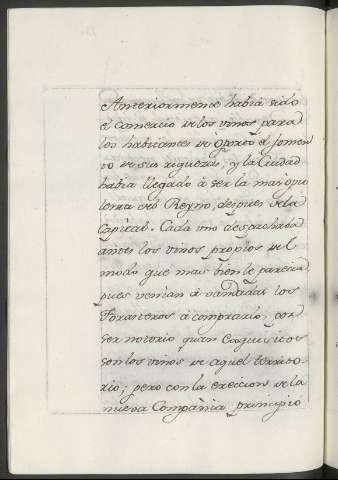 Anteriormente habia sido
el comercio de los vinos para
los habitantes de Oporto el fomen
to de sus riquezas, y la Ciudad
habia llegado à ser la mas opu
lenta del Reyno, despues de la
Capital. Cada uno despachaba
antes los vinos propios del
modo que mas bien le parecia,
pues venian à vandadas los
Foranteros à comprarlo, por
ser notorio quan exquisitos
son los vinos de aquel territo-
rio; pero con la ereccion de la
nueva Compañia, principiò